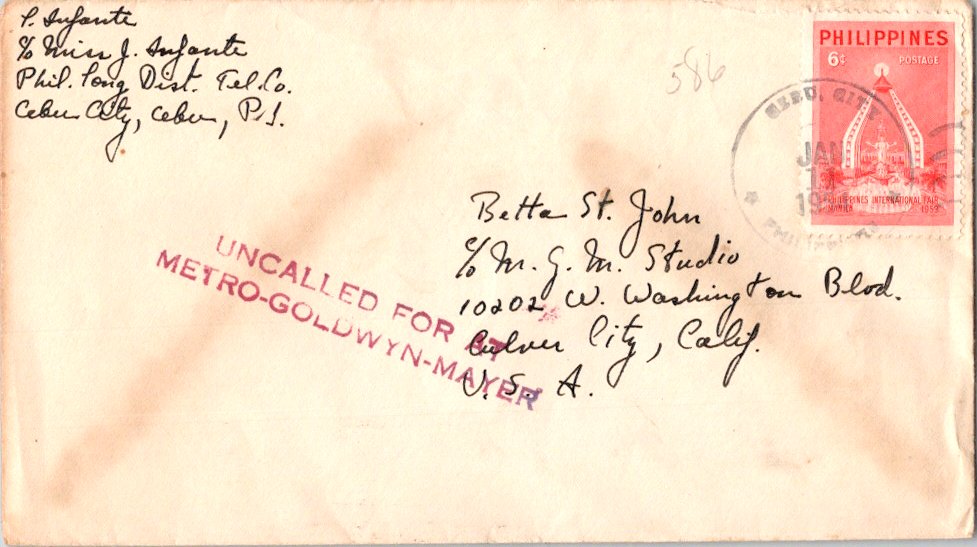 P. Infante
c/o Miss J. Infante
Phil. Long Dist. Tel. Co.
Cebu City, Cebu, P.I.
586
PHILIPPINES
6¢ POSTAGE
PHILIPPINES INTERNATIONAL FAIR
MANILA 1953
CEBU, CITY
JAN
PHILIPPINES
Betta St. John
c/o M. G. M. Studio
10202 W. Washington Blvd.
Culver City, Calif.
U. S. A.
UNCALLED FOR AT
METRO-GOLDWYN-MAYER